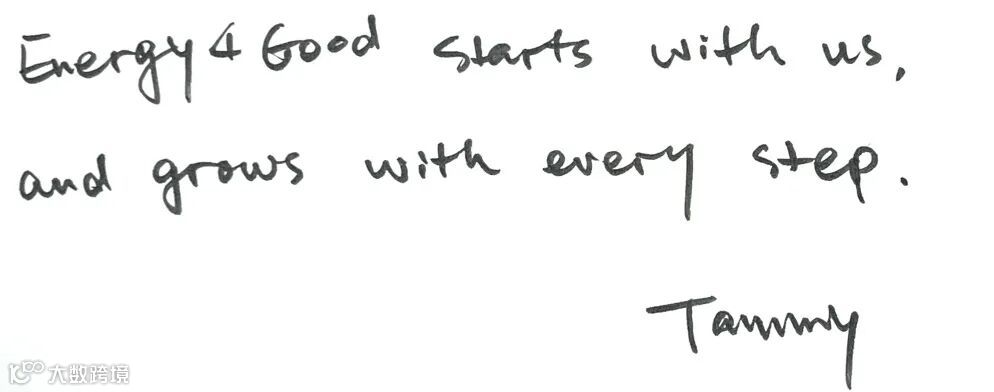 Energy4Good starts with us,
and grows with every step.
Tammy
大数跨境